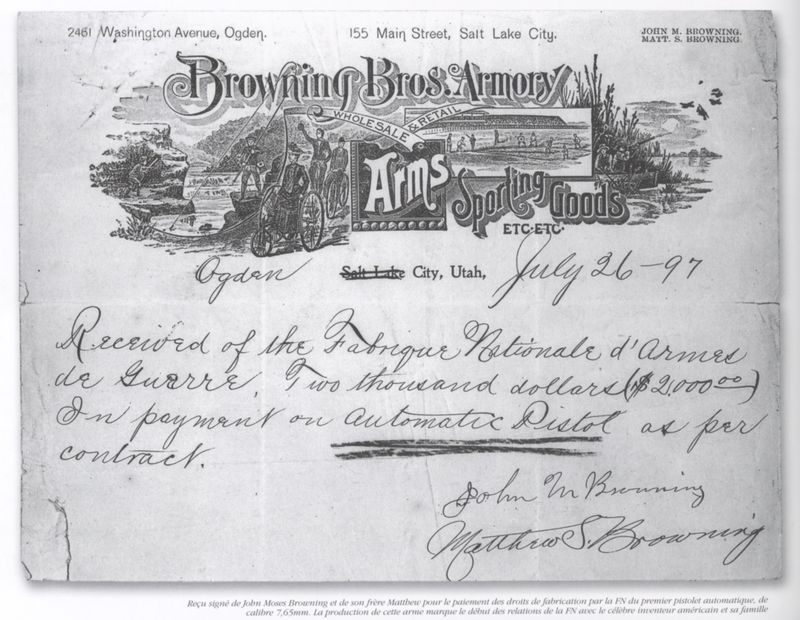 2461 Washington Avenue, Ogden. 155 Main Street, Salt Lake City. JOHN M. BROWNING.
MATT. S. BROWNING.
Browning Bros. Armory
WHOLESALE & RETAIL
Arms
Sporting Goods
ETC. ETC.
Ogden Salt Lake City, Utah, July 26-97
Received of the Fabrique Nationale d'Armes
de Guerre, Two thousand dollars ($2,000 00)
In payment on Automatic Pistol as per
contract.
John M Browning
Matthew S. Browning
Reçu signé de John Moses Browning et de son frère Matthew pour le paiement des droits de fabrication par la FN du premier pistolet automatique, de
calibre 7,65mm. La production de cette arme marque le début des relations de la FN avec le célèbre inventeur américain et sa famille